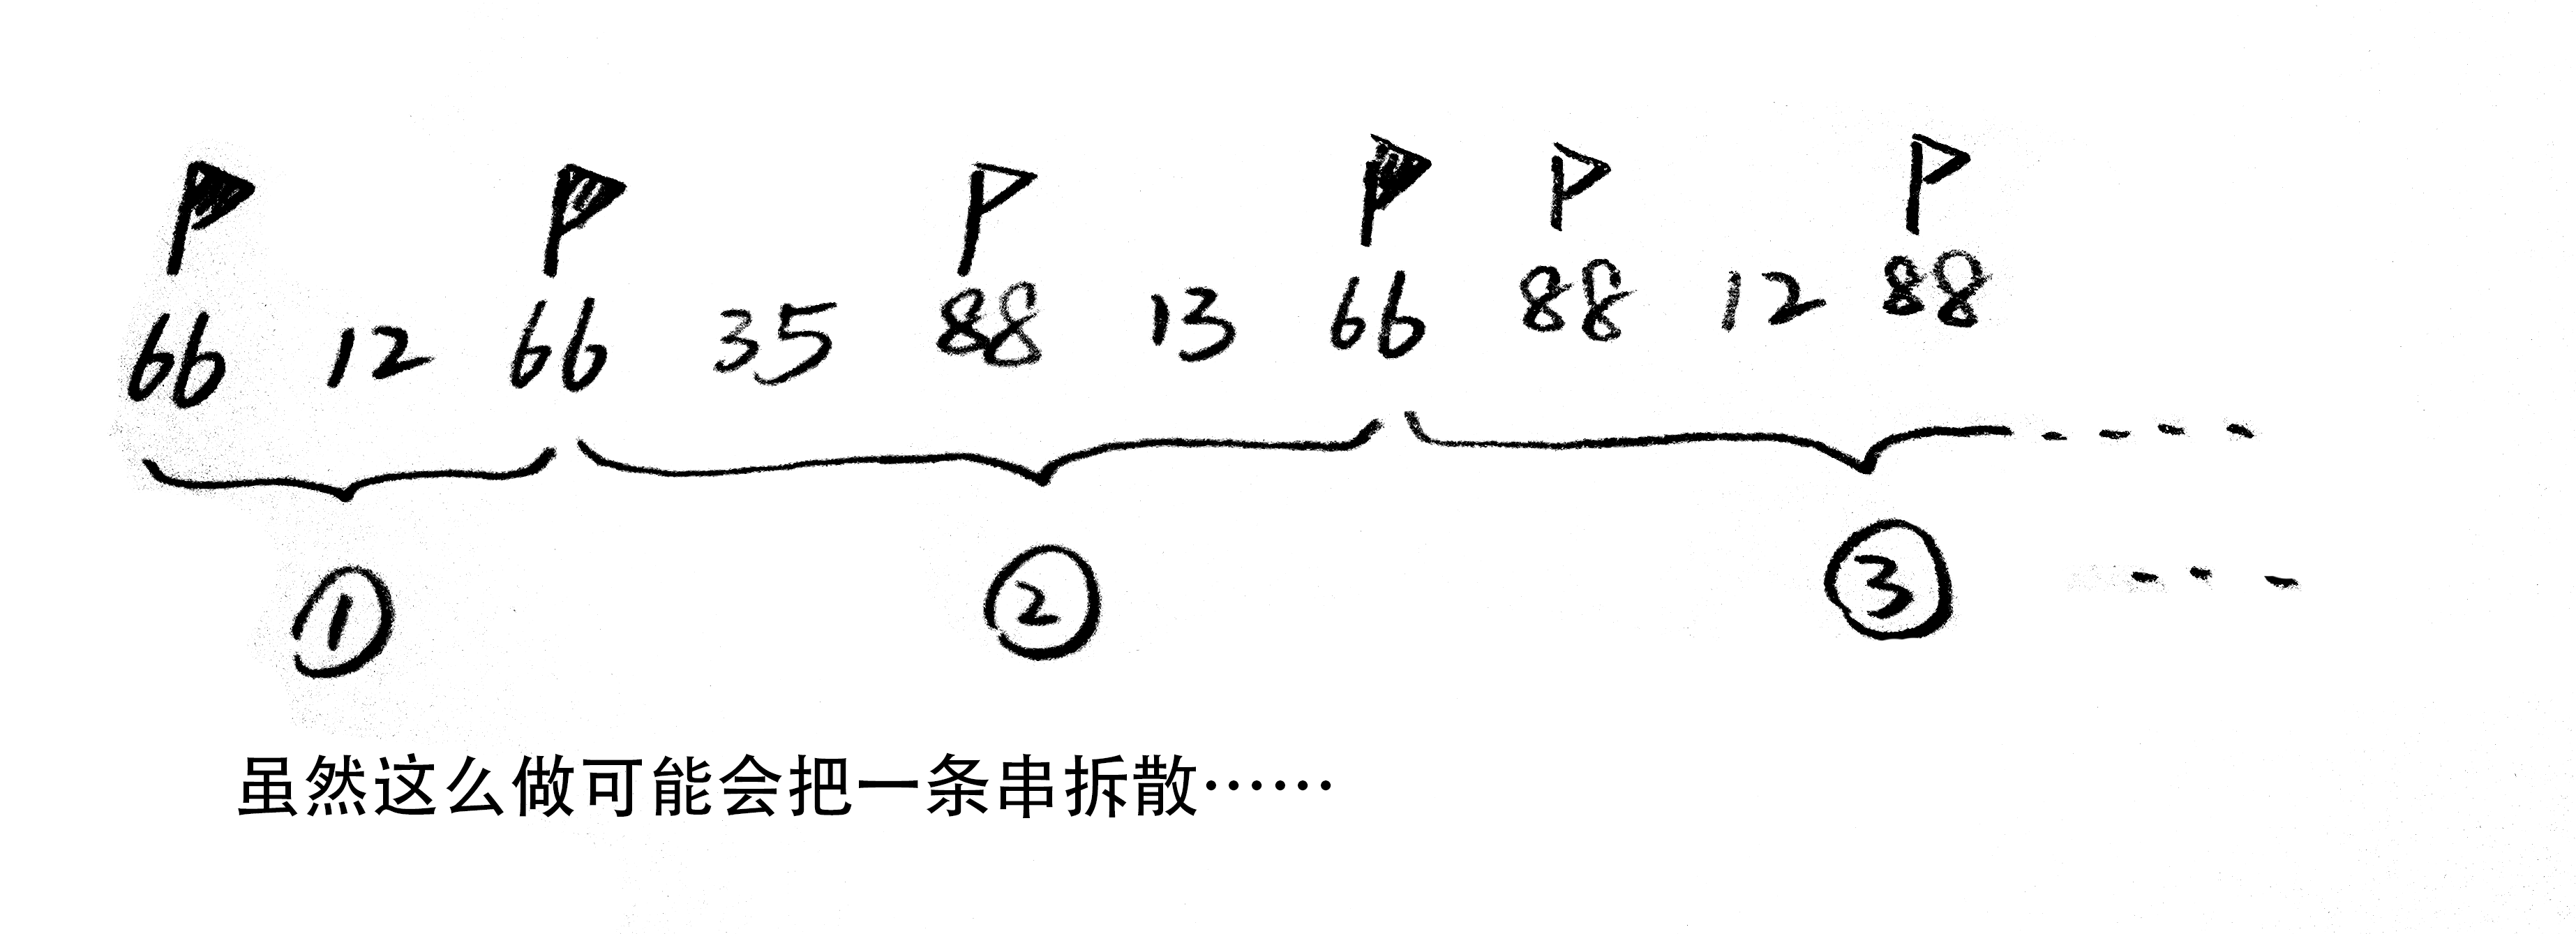 66 12 66 35 88 13 66 88 12 88
① ② ③
虽然这么做可能会把一条串拆散……